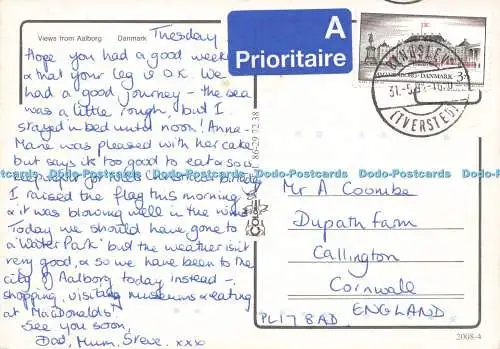 Views from Aalborg Denmark
Tuesday
Hope you had a good week
& that your leg is O.K. We
had a good journey - the sea
was a little rough, but I
stayed in bed until noon! Anna-
Marie was pleased with her cake
but says it's too good to eat & so is
I raised the flag this morning
& it was blowing well in the wind
Today we should have gone to
a 'Water Park' but the weather isn't
very good, & so we have been to the
city of Aalborg today instead -
shopping, visiting museums & eating
at MacDonalds!
See you soon,
Dad, Mum, Steve. xxx
A
Prioritaire
AMALIENBORG · DANMARK
(TVERSTED)
Mr A Coombe
Dupath Farm
Callington
Cornwall
ENGLAND
PL17 8AD
2008-4
Dodo-Postcards Dodo-Postcards Dodo-Postcards Dodo-Postcards